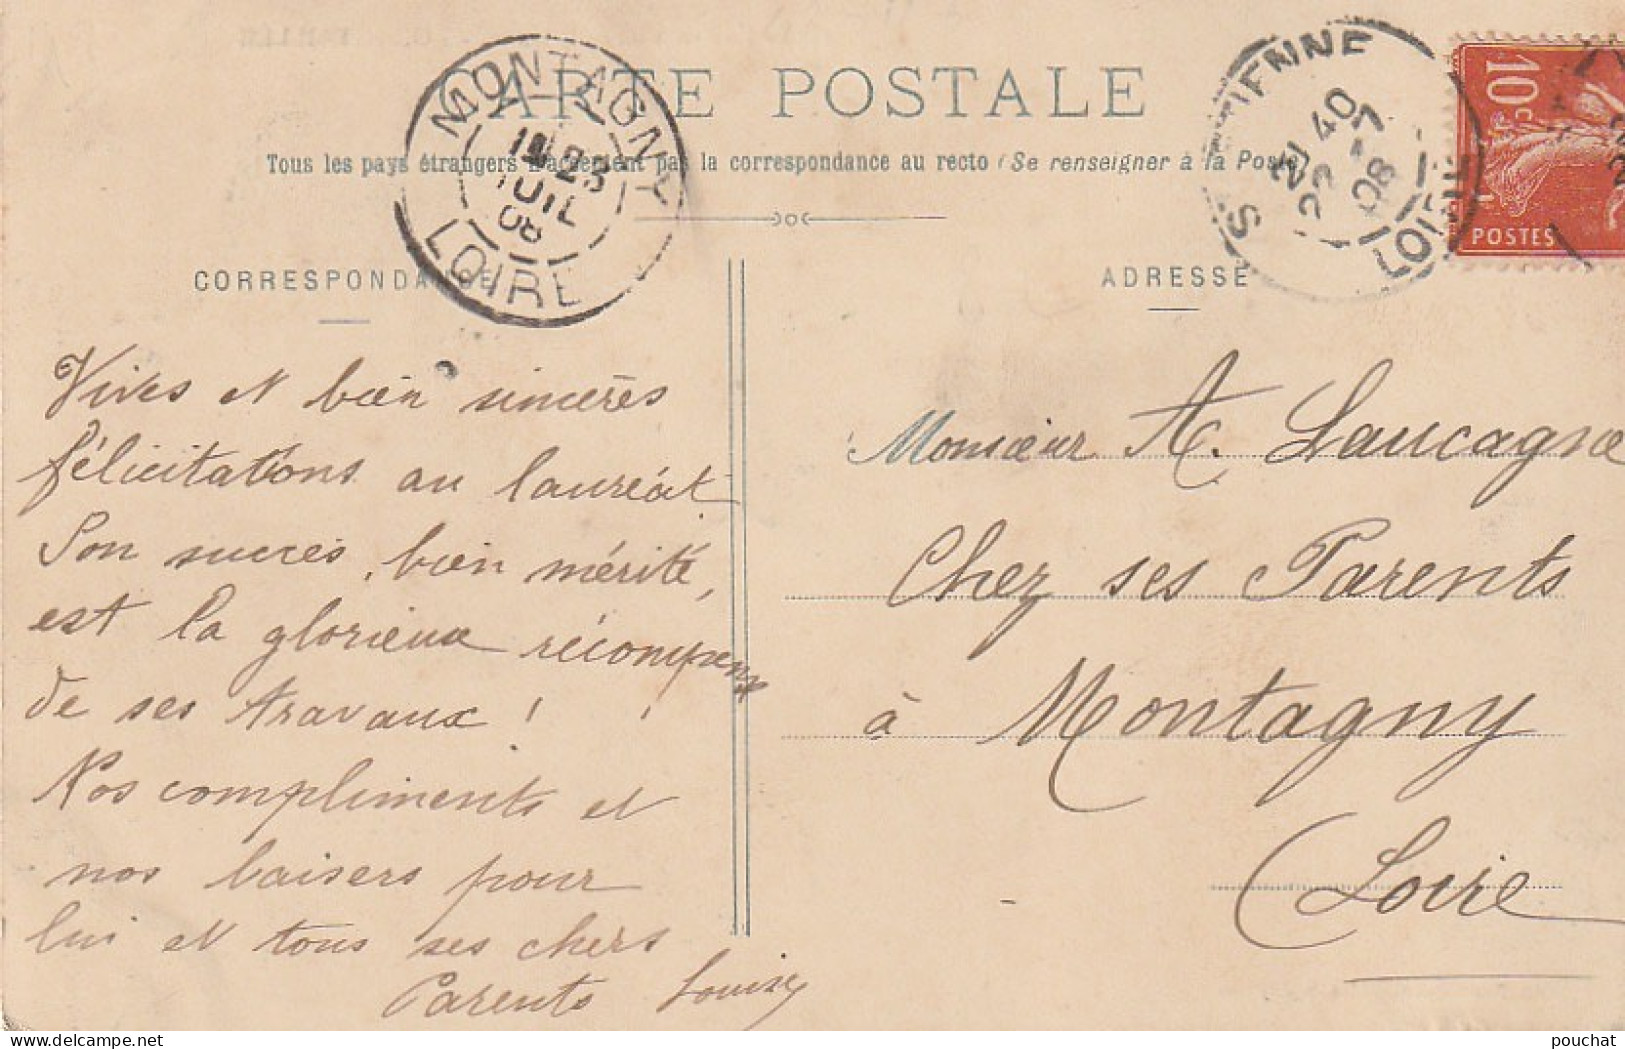 CARTE POSTALE
Tous les pays étrangers n'acceptent pas la correspondance au recto (Se renseigner à la Poste)
CORRESPONDANCE
ADRESSE
MONTAGNY
23
JUIL
08
LOIRE
ST ETIENNE
21 40
22 - 7
08
LOIRE
10c
POSTES
Vives et bien sincères
félicitations au lauréat
Son succès, bien mérité,
est la glorieuse récompense
de ses travaux !
Nos compliments et
nos baisers pour
lui et tous ses chers
Parents
Monsieur A. Laucagne
Chez ses Parents
à Montagny
Loire
pouchat